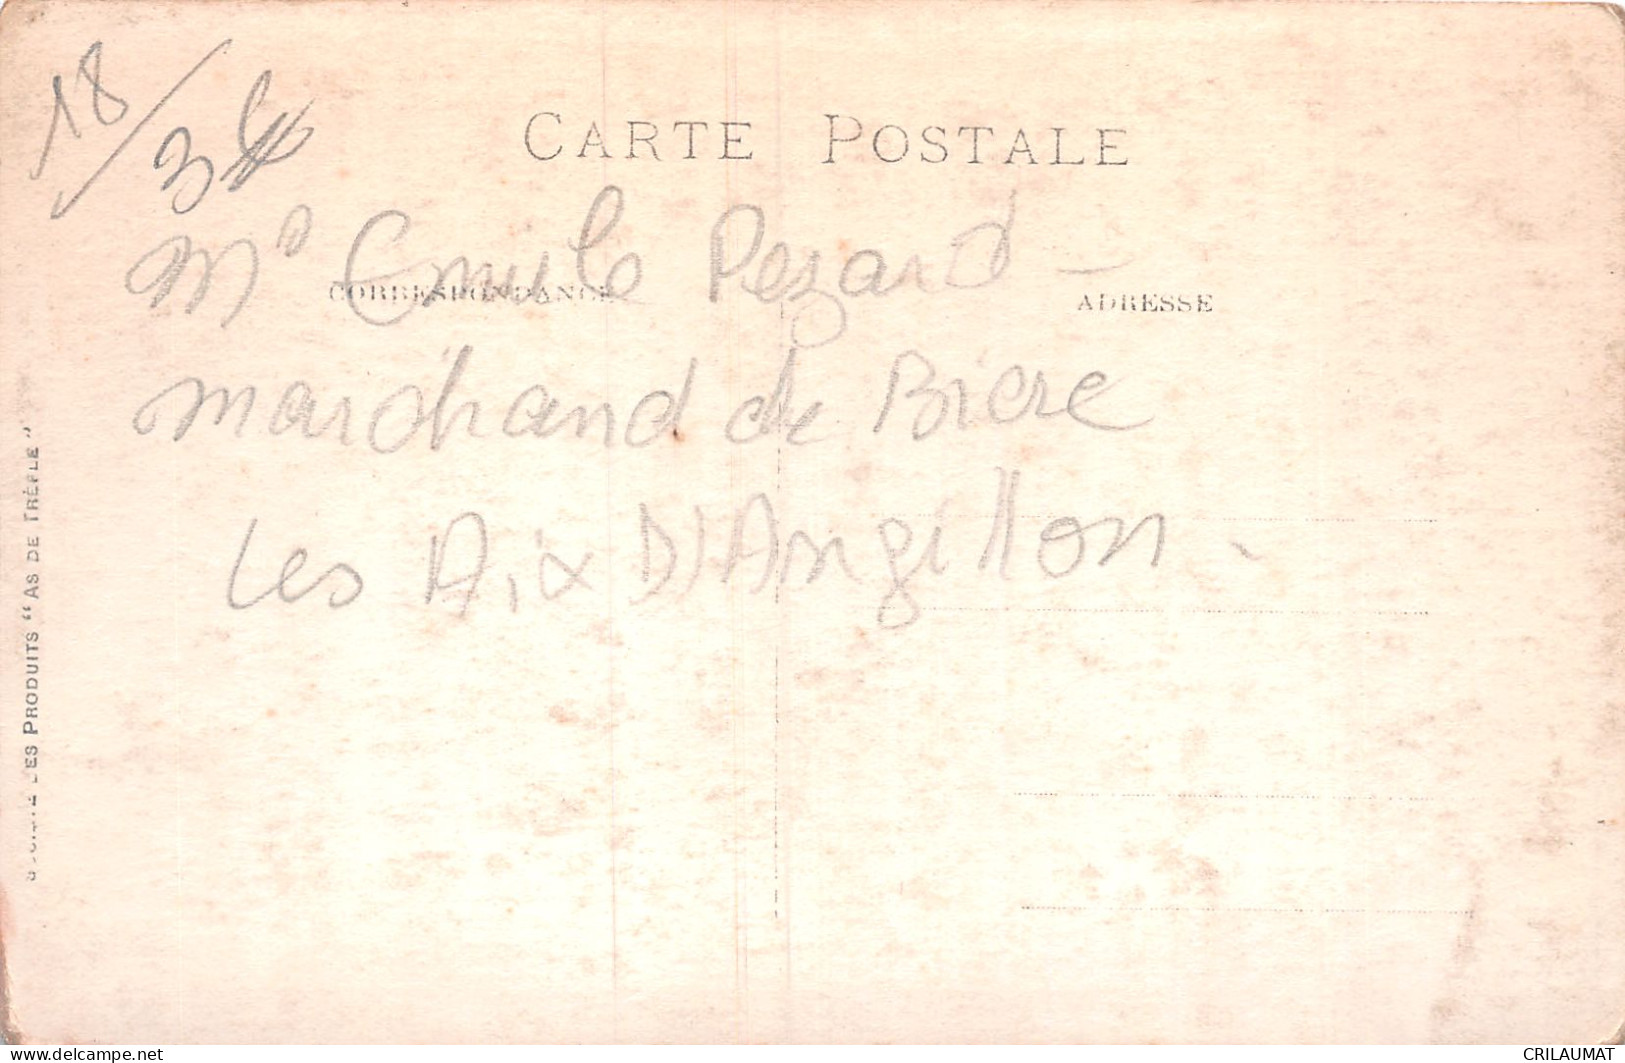 18
3
CARTE POSTALE
Mr Emile Pezard
CORRESPONDANCE
ADRESSE
marchand de Biere
Les Aix D'Angillon -
DES PRODUITS "AS DE TRÈFLE"
www.delcampe.net
CRILAUMAT